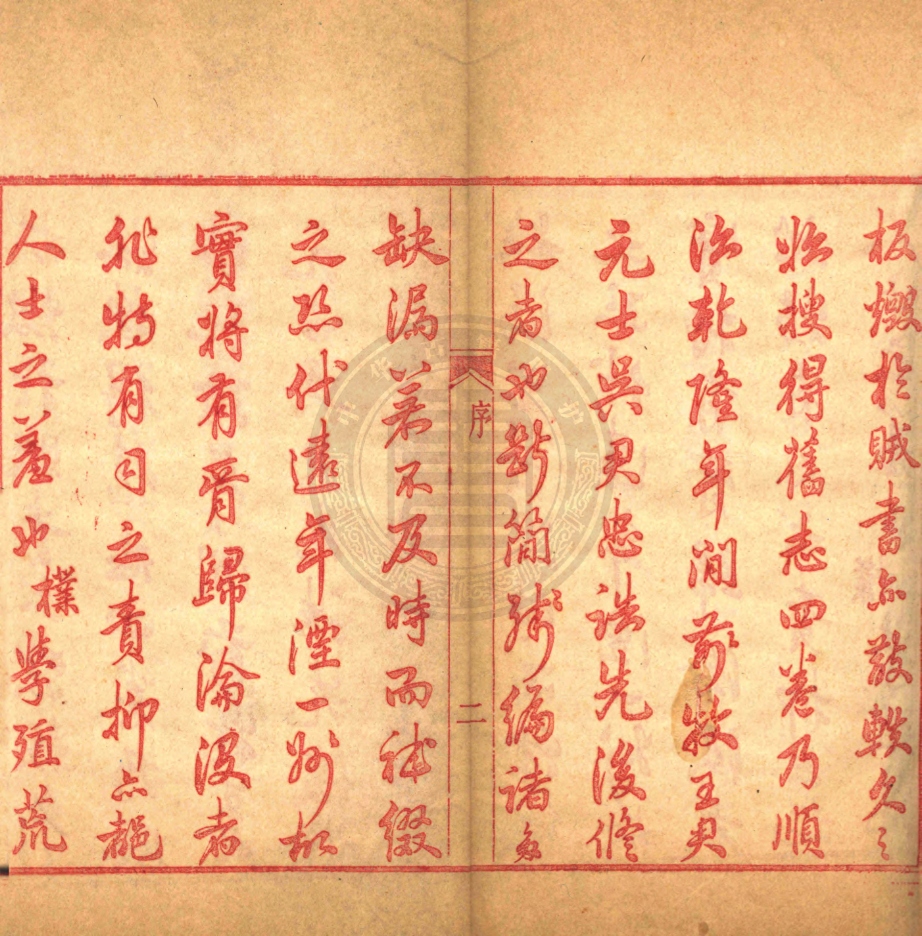 板燬於賊書亦散軼久之
始搜得舊志四卷乃順
治乾隆年間前牧王尹
元士吳尹忠誥先後修
之者也斷簡殘編諸多
序
二
缺漏若不及時而補綴
之恐代遠年湮一州故
實將有胥歸淪没者
非特有司之責抑亦龍
人士之羞也樸學殖荒